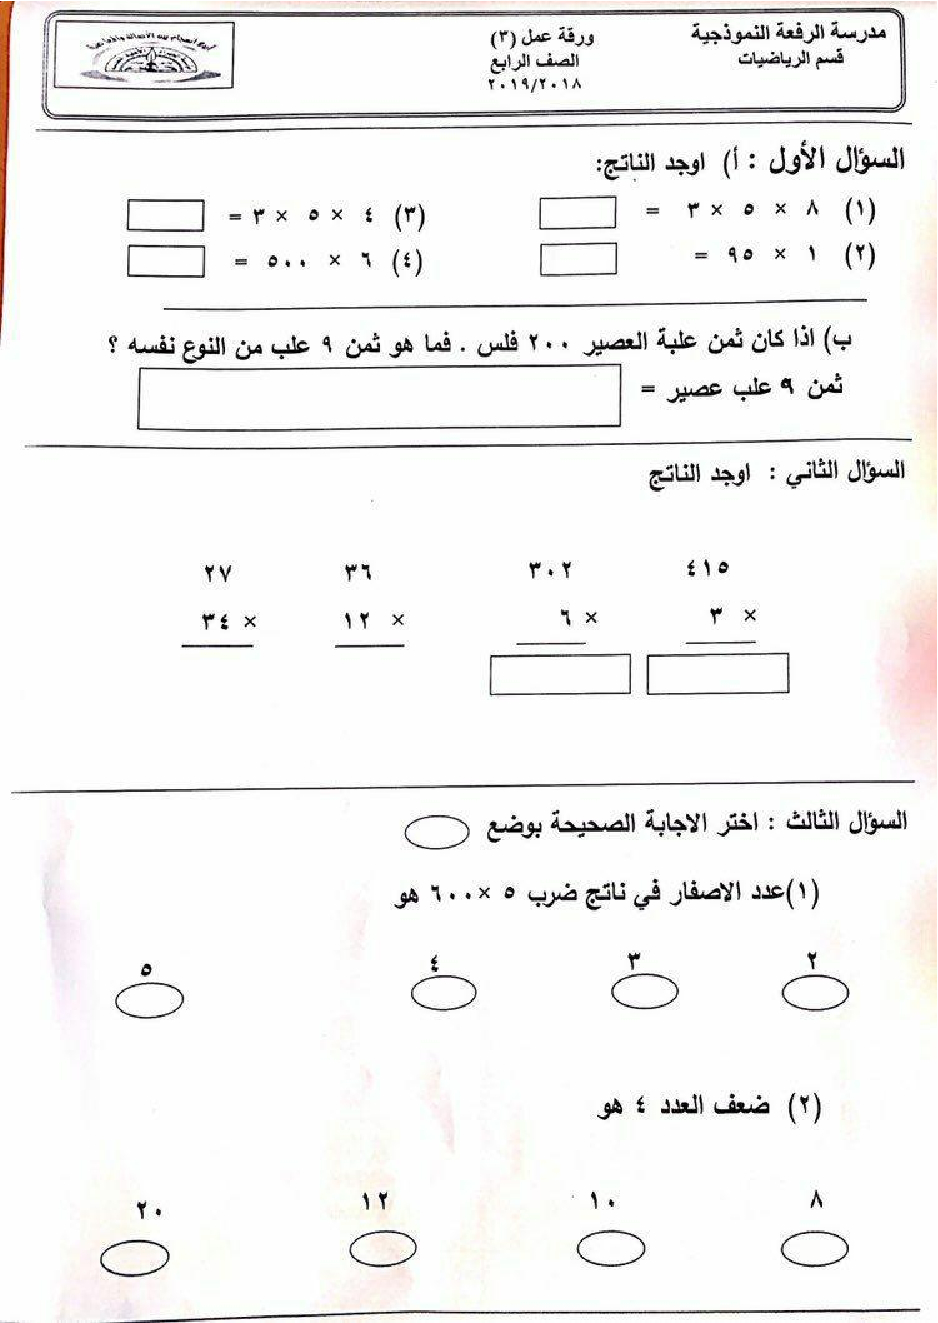 مدرسة الرفعة النموذجية
قسم الرياضيات
ورقة عمل (٣)
الصف الرابع
٢٠١٩/٢٠١٨
السؤال الأول : أ) اوجد الناتج:
(١) ٨ × ٥ × ٣ =
(٣) ٤ × ٥ × ٣ =
(٢) ١ × ٩٥ =
(٤) ٦ × ٥٠٠ =
ب) اذا كان ثمن علبة العصير ٢٠٠ فلس . فما هو ثمن ٩ علب من النوع نفسه ؟
ثمن ٩ علب عصير =
السؤال الثاني : اوجد الناتج
٤١٥ ٣٠٢ ٣٦ ٢٧
× ٣ × ٦ × ١٢ × ٣٤
السؤال الثالث : اختر الاجابة الصحيحة بوضع
(١)عدد الاصفار في ناتج ضرب ٥ ×٦٠٠ هو
٢ ٣ ٤ ٥
(٢) ضعف العدد ٤ هو
٨ ١٠ ١٢ ٢٠